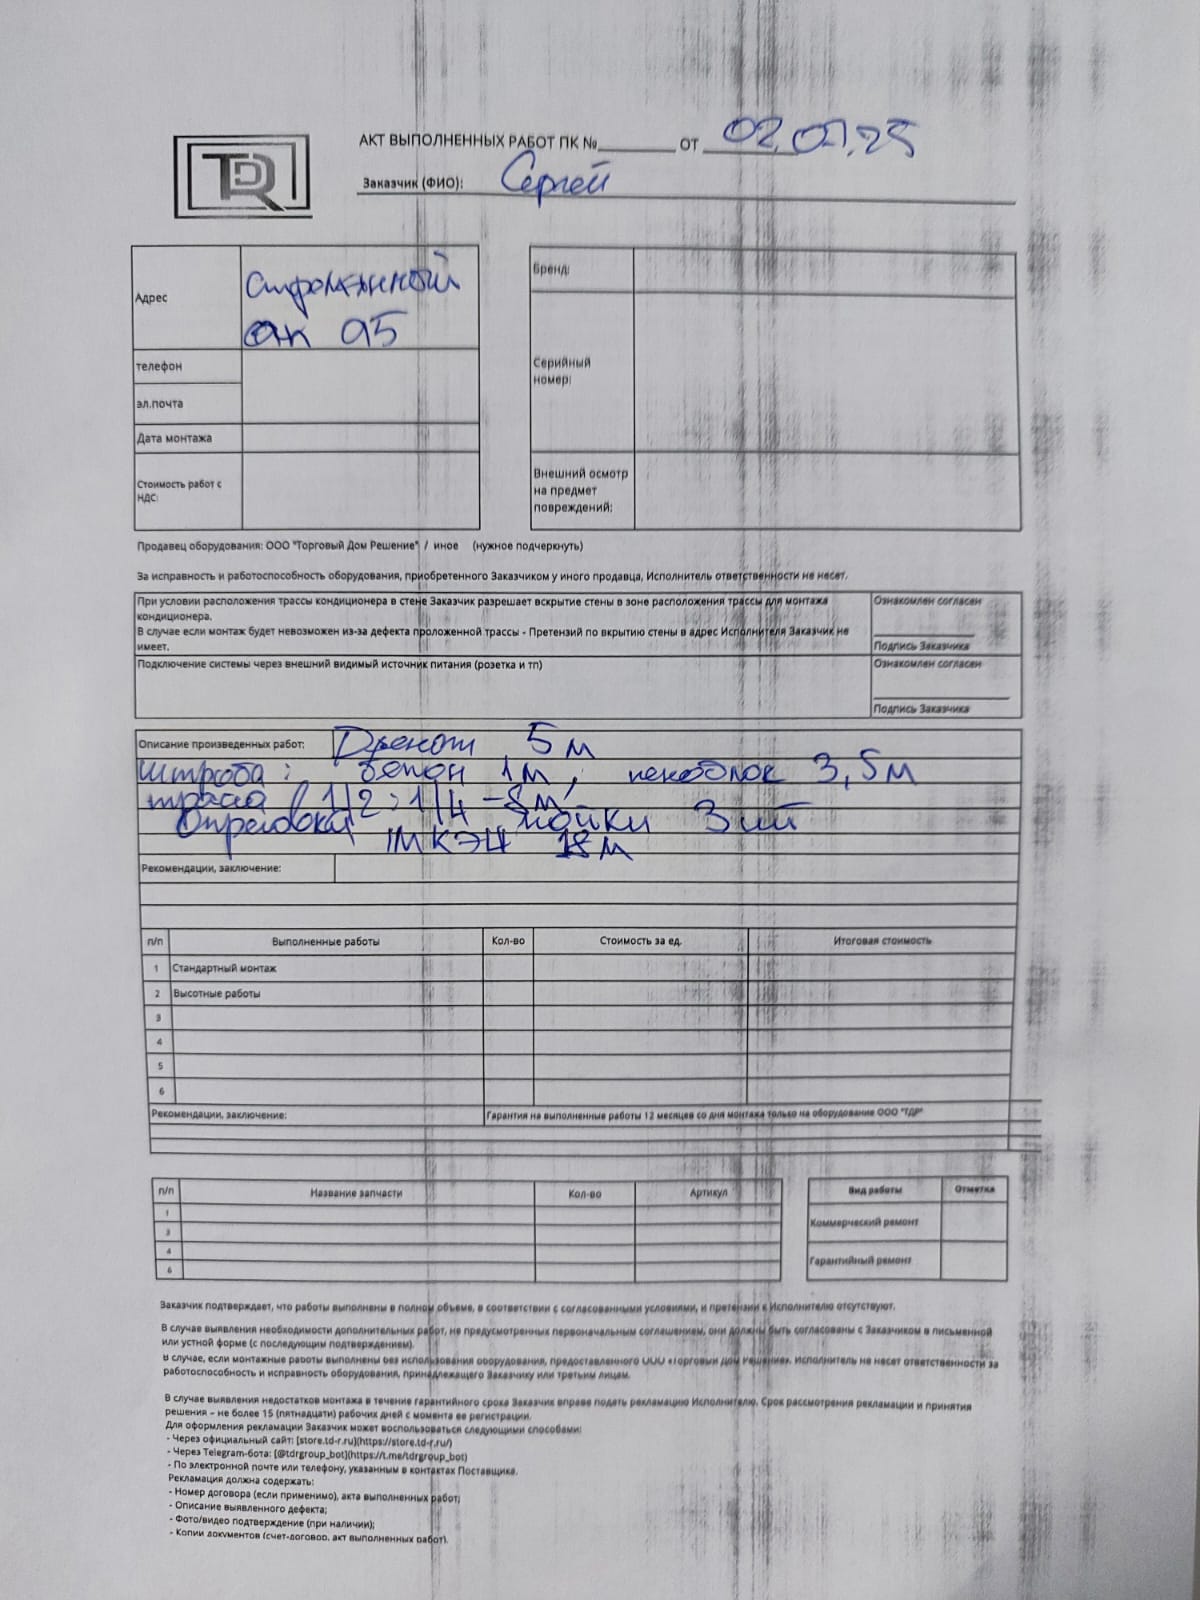 TDR
АКТ ВЫПОЛНЕННЫХ РАБОТ ПК №________ ОТ 02.07.25
Заказчик (ФИО): Сергей
Адрес
95
телефон
эл.почта
Дата монтажа
Стоимость работ с НДС:
Бренд:
Серийный номер:
Внешний осмотр на предмет повреждений:
Продавец оборудования: ООО "Торговый Дом Решение" / иное (нужное подчеркнуть)
За исправность и работоспособность оборудования, приобретенного Заказчиком у иного продавца, Исполнитель ответственности не несет.
При условии расположения трассы кондиционера в стене Заказчик разрешает вскрытие стены в зоне расположения трассы для монтажа
кондиционера.
В случае если монтаж будет невозможен из-за дефекта проложенной трассы - Претензий по вкрытию стены в адрес Исполнителя Заказчик не
имеет.
Ознакомлен согласен
Подпись Заказчика
Подключение системы через внешний видимый источник питания (розетка и тп)
Ознакомлен согласен
Подпись Заказчика
Описание произведенных работ: Дренаж 5 м
Штроба: бетон 1м, пеноблок 3,5м
траса 1/2 : 1/4 – 8м
Опресовка пайки 3 шт
МКЭШ м
Рекомендации, заключение:
п/п Выполненные работы Кол-во Стоимость за ед. Итоговая стоимость
1 Стандартный монтаж
2 Высотные работы
3
4
5
6
Рекомендации, заключение: Гарантия на выполненные работы 12 месяцев со дня монтажа только на оборудование ООО "ТДР"
п/п Название запчасти Кол-во Артикул
1
3
4
6
Вид работы Отметка
Коммерческий ремонт
Гарантийный ремонт
Заказчик подтверждает, что работы выполнены в полном объеме, в соответствии с согласованными условиями, и претензии к Исполнителю отсутствуют.
В случае выявления необходимости дополнительных работ, не предусмотренных первоначальным соглашением, они должны быть согласованы с Заказчиком в письменной
или устной форме (с последующим подтверждением).
В случае, если монтажные работы выполнены без использования оборудования, предоставленного ООО «Торговый Дом Решение», Исполнитель не несет ответственности за
работоспособность и исправность оборудования, принадлежащего Заказчику или третьим лицам.
В случае выявления недостатков монтажа в течение гарантийного срока Заказчик вправе подать рекламацию Исполнителю. Срок рассмотрения рекламации и принятия
решения – не более 15 (пятнадцати) рабочих дней с момента ее регистрации.
Для оформления рекламации Заказчик может воспользоваться следующими способами:
- Через официальный сайт: [store.td-r.ru](https://store.td-r.ru/)
- Через Telegram-бота: [@tdrgroup_bot](https://t.me/tdrgroup_bot)
- По электронной почте или телефону, указанным в контактах Поставщика.
Рекламация должна содержать:
- Номер договора (если применимо), акта выполненных работ;
- Описание выявленного дефекта;
- Фото/видео подтверждение (при наличии);
- Копии документов (счет-договор, акт выполненных работ).